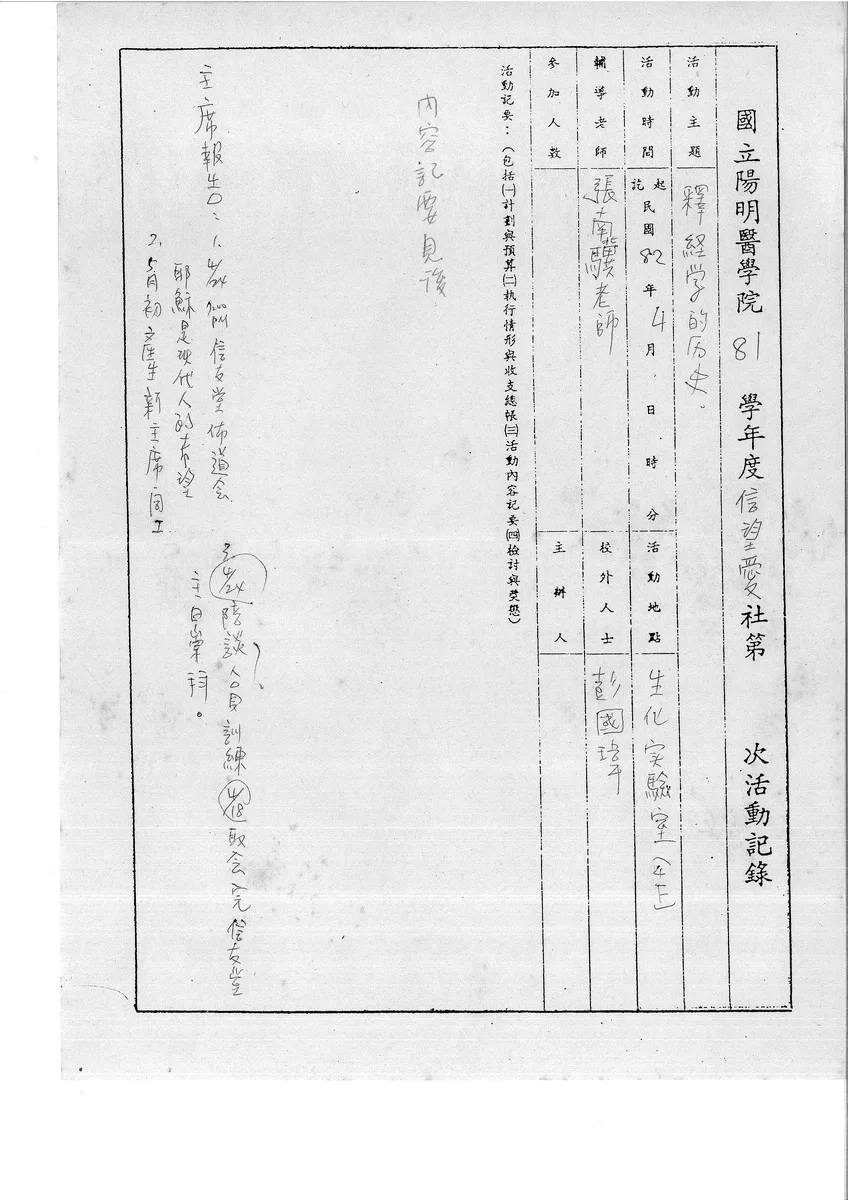 國立陽明醫學院 81 學年度信望愛社第 次活動記錄
活動主題 釋経学的历史。
活動時間 起訖 民國 82 年 4 月 日 時 分 活動地點 生化实驗室(4F)
輔導老師 張南驥老師 校外人士 彭國瑋
參加人數 主辦人
活動記要:(包括㈠計劃與預算㈡執行情形與收支總帳㈢活動內容記要㈣檢討與獎懲)
内容記要見後
主席報告:1. 信友堂佈道会
耶穌是現代人的希望
2. 5月初產生新主席同工
3. 4/24 陪談人員訓練 4/18 聚会完 信友堂
主日崇拜。